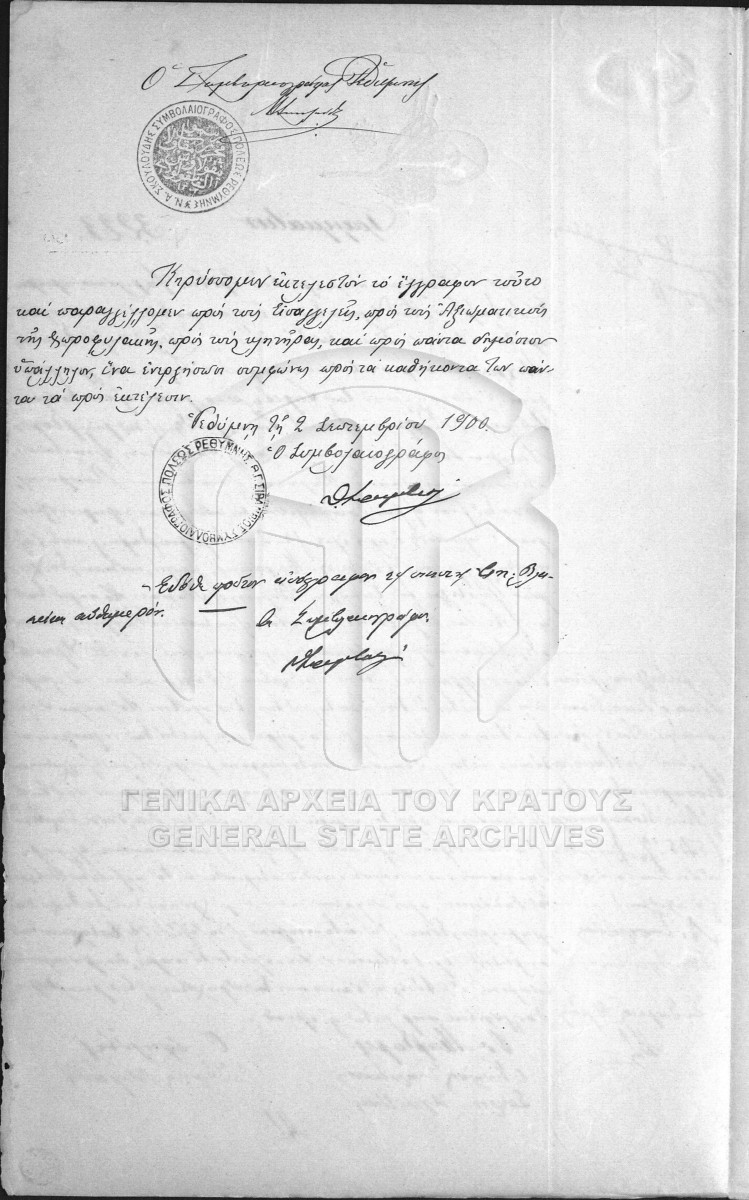 Ὁ Συμβολαιογράφος Ῥεθύμνης
Ν. Α. ΣΚΟΥΛΟΥΔΗΣ ΣΥΜΒΟΛΑΙΟΓΡΑΦΟΣ ΠΟΛΕΩΣ ΡΕΘΥΜΝΗΣ
Κηρύσσομεν ἐκτελεστὸν τὸ ἔγγραφον τοῦτο
καὶ παραγγέλλομεν πρὸς τοὺς Εἰσαγγελεῖς, πρὸς τοὺς Ἀξιωματικοὺς
τῆς Χωροφυλακῆς, πρὸς τοὺς κλητῆρας, καὶ πρὸς πάντα δημόσιον
ὑπάλληλον, ἵνα ἐνεργήσωσι συμφώνως πρὸς τὰ καθήκοντά των πάν-
τα τὰ πρὸς ἐκτέλεσιν.
Ῥεθύμνῃ τῇ 2 Σεπτεμβρίου 1900.
Ὁ Συμβολαιογράφος
ΣΥΜΒΟΛΑΙΟΓΡΑΦΟΣ ΠΟΛΕΩΣ ΡΕΘΥΜΝΗΣ
Ἐδόθη πρῶτον ἀντίγραφον
αὐθημερόν.
Ὁ Συμβολαιογράφος
ΓΕΝΙΚΑ ΑΡΧΕΙΑ ΤΟΥ ΚΡΑΤΟΥΣ
GENERAL STATE ARCHIVES